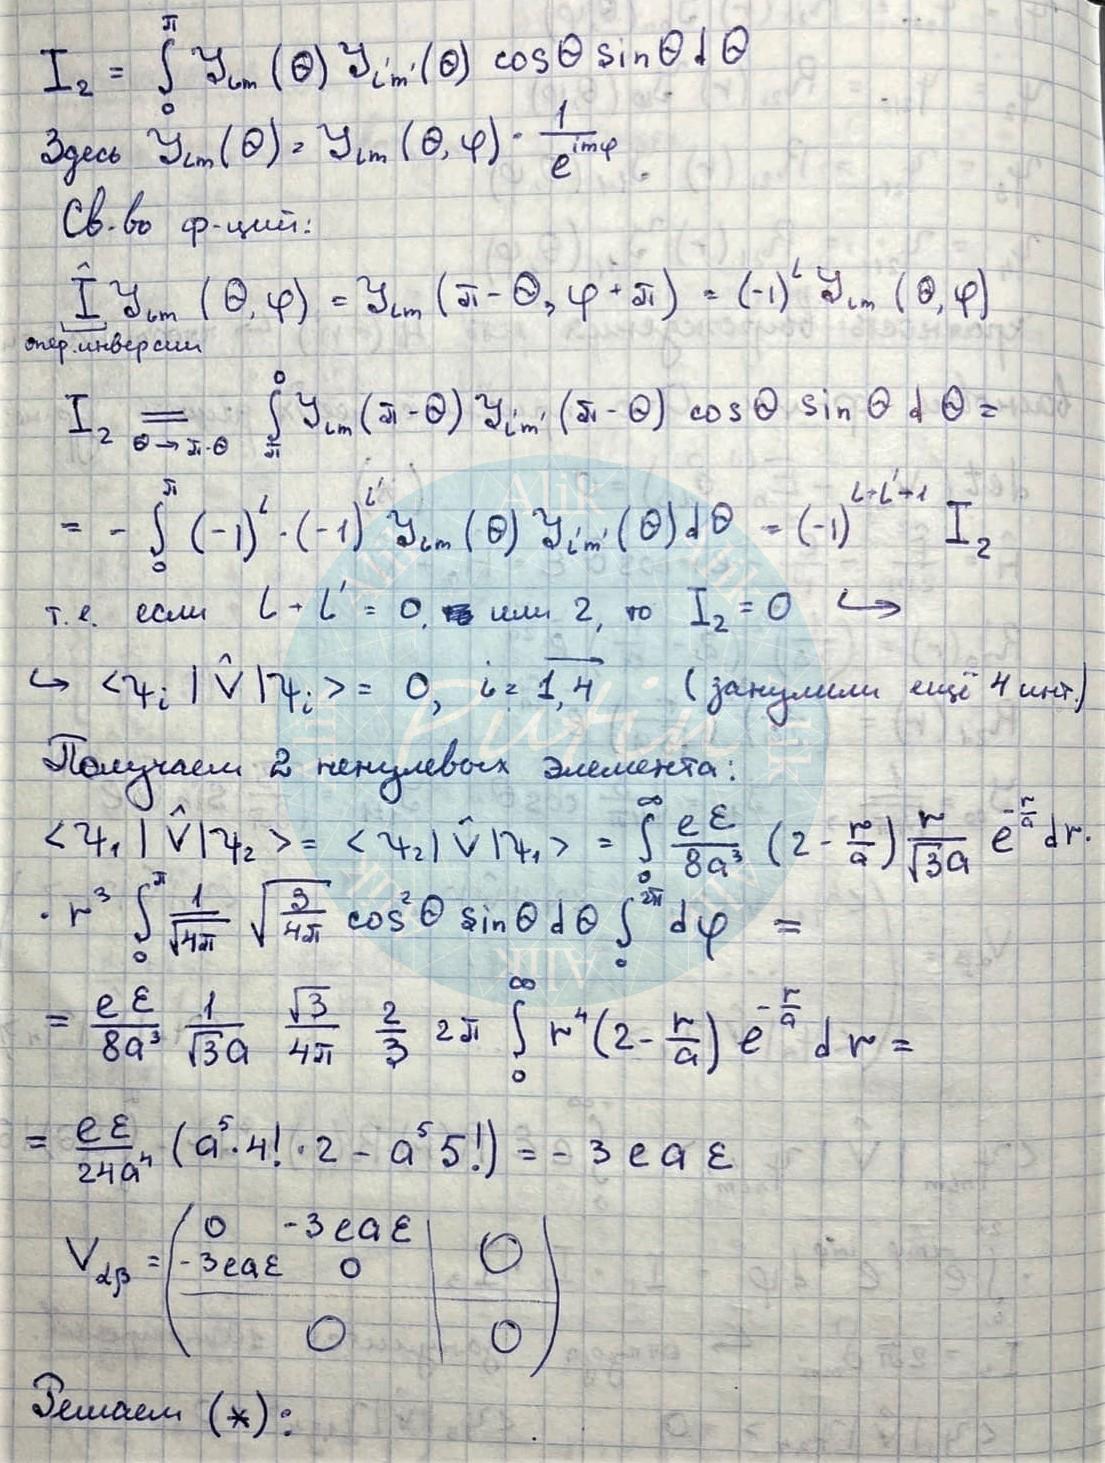 I₂ = ∫₀^π Y_lm (θ) Y_l'm' (θ) cosθ sinθ dθ
Здесь Y_lm (θ) = Y_lm (θ, φ) · 1/e^{imφ}.
Св-во ф-ций:
Î Y_lm (θ, φ) = Y_lm (π - θ, φ + π) = (-1)^l Y_lm (θ, φ)
опер. инверсии
I₂ =_{θ → π-θ} ∫_π^0 Y_lm (π - θ) Y_l'm' (π - θ) cosθ sinθ dθ =
= - ∫₀^π (-1)^l · (-1)^{l'} Y_lm (θ) Y_l'm' (θ) dθ = (-1)^{l+l'+1} I₂
т.е. если l + l' = 0, или 2, то I₂ = 0 ↪
↪ <ψ_i | V̂ | ψ_i> = 0, i = 1,4 (занулили ещё 4 инт.)
Получаем 2 ненулевых элемента:
<ψ₁ | V̂ | ψ₂> = <ψ₂ | V̂ | ψ₁> = ∫₀^∞ eε/8a³ (2 - r/a) r/√3a e^{-r/a} dr ·
· r³ ∫₀^π 1/√4π √(3/4π) cos²θ sinθ dθ ∫₀^{2π} dφ =
= eε/8a³ 1/√3a √3/4π 2/3 2π ∫₀^∞ r⁴ (2 - r/a) e^{-r/a} dr =
= eε/24a⁴ (a⁵ · 4! · 2 - a⁵ 5!) = - 3eaε
V_αβ = ( 0 -3eaε | 0
-3eaε 0 |
0 | 0 )
Решаем (*):
Alik
Putin